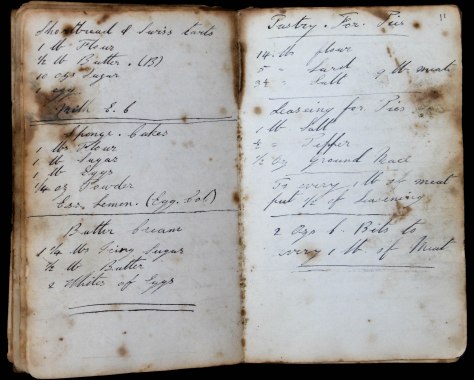 Shortbread & Swiss tarts
1 lb Flour
½ lb Butter. (B)
10 ozs Sugar
1 egg
E. C
Sponge. Cakes
1 lb Flour
1 lb Sugar
1 lb Eggs
¼ oz Powder
Ess. Lemon. (Egg. Col)
Butter Cream
1 ¼ lbs Icing Sugar
½ lb Butter
2 Whites of Eggs
11
Pastry. For. Pies
14 lbs flour
5 " Lard
" Salt 9 lb meat
Seasoing for Pies
1 lb Salt
" Pepper
½ oz Ground Mace
To every 1 lb of meat
put ½ of Seasening
2 ozs b. Bits to
every 1 lb of Meat